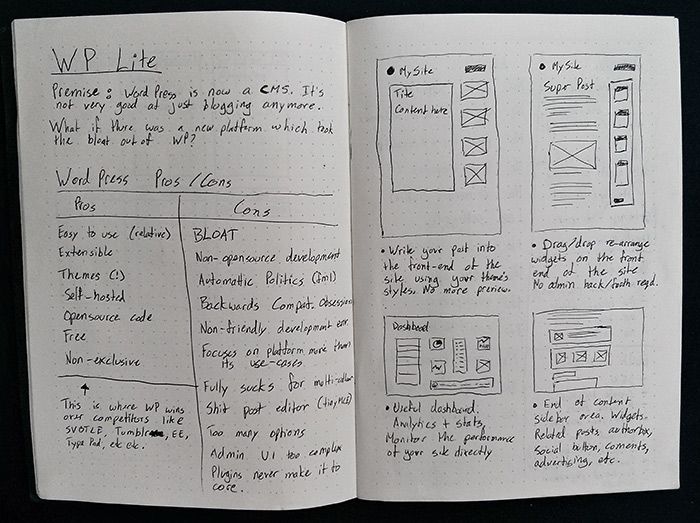 WP Lite
Premise: WordPress is now a CMS. It's
not very good at just blogging anymore.
What if there was a new platform which took
the bloat out of WP?
Word Press Pros / Cons
Pros
Easy to use (relative)
Extensible
Themes (!)
Self-hosted
Opensource code
Free
Non-exclusive
This is where WP wins
over competitors like
SVBTLE, Tumblr, EE,
TypePad, etc etc.
Cons
BLOAT
Non-opensource development
Automattic Politics (fml)
Backwards Compat. Obsession
Non-friendly development env.
Focuses on platform more than
its use-cases.
Fully sucks for multi-author
Shit post editor (tinyMCE)
Too many options
Admin UI too complex
Plugins never make it to
core.
MySite
Title
Content here
• Write your post into
the front-end of the
site using your theme's
styles. No more preview.
MySite
Super Post
• Drag/drop re-arrange
widgets on the front
end of the site
No admin back/forth reqd.
Dashboard
• Useful dashboard.
Analytics + stats,
Monitor the performance
of your site directly
• End of content
sidebar area. Widgets.
Related posts, authorbox,
social button, coments,
advertising, etc.